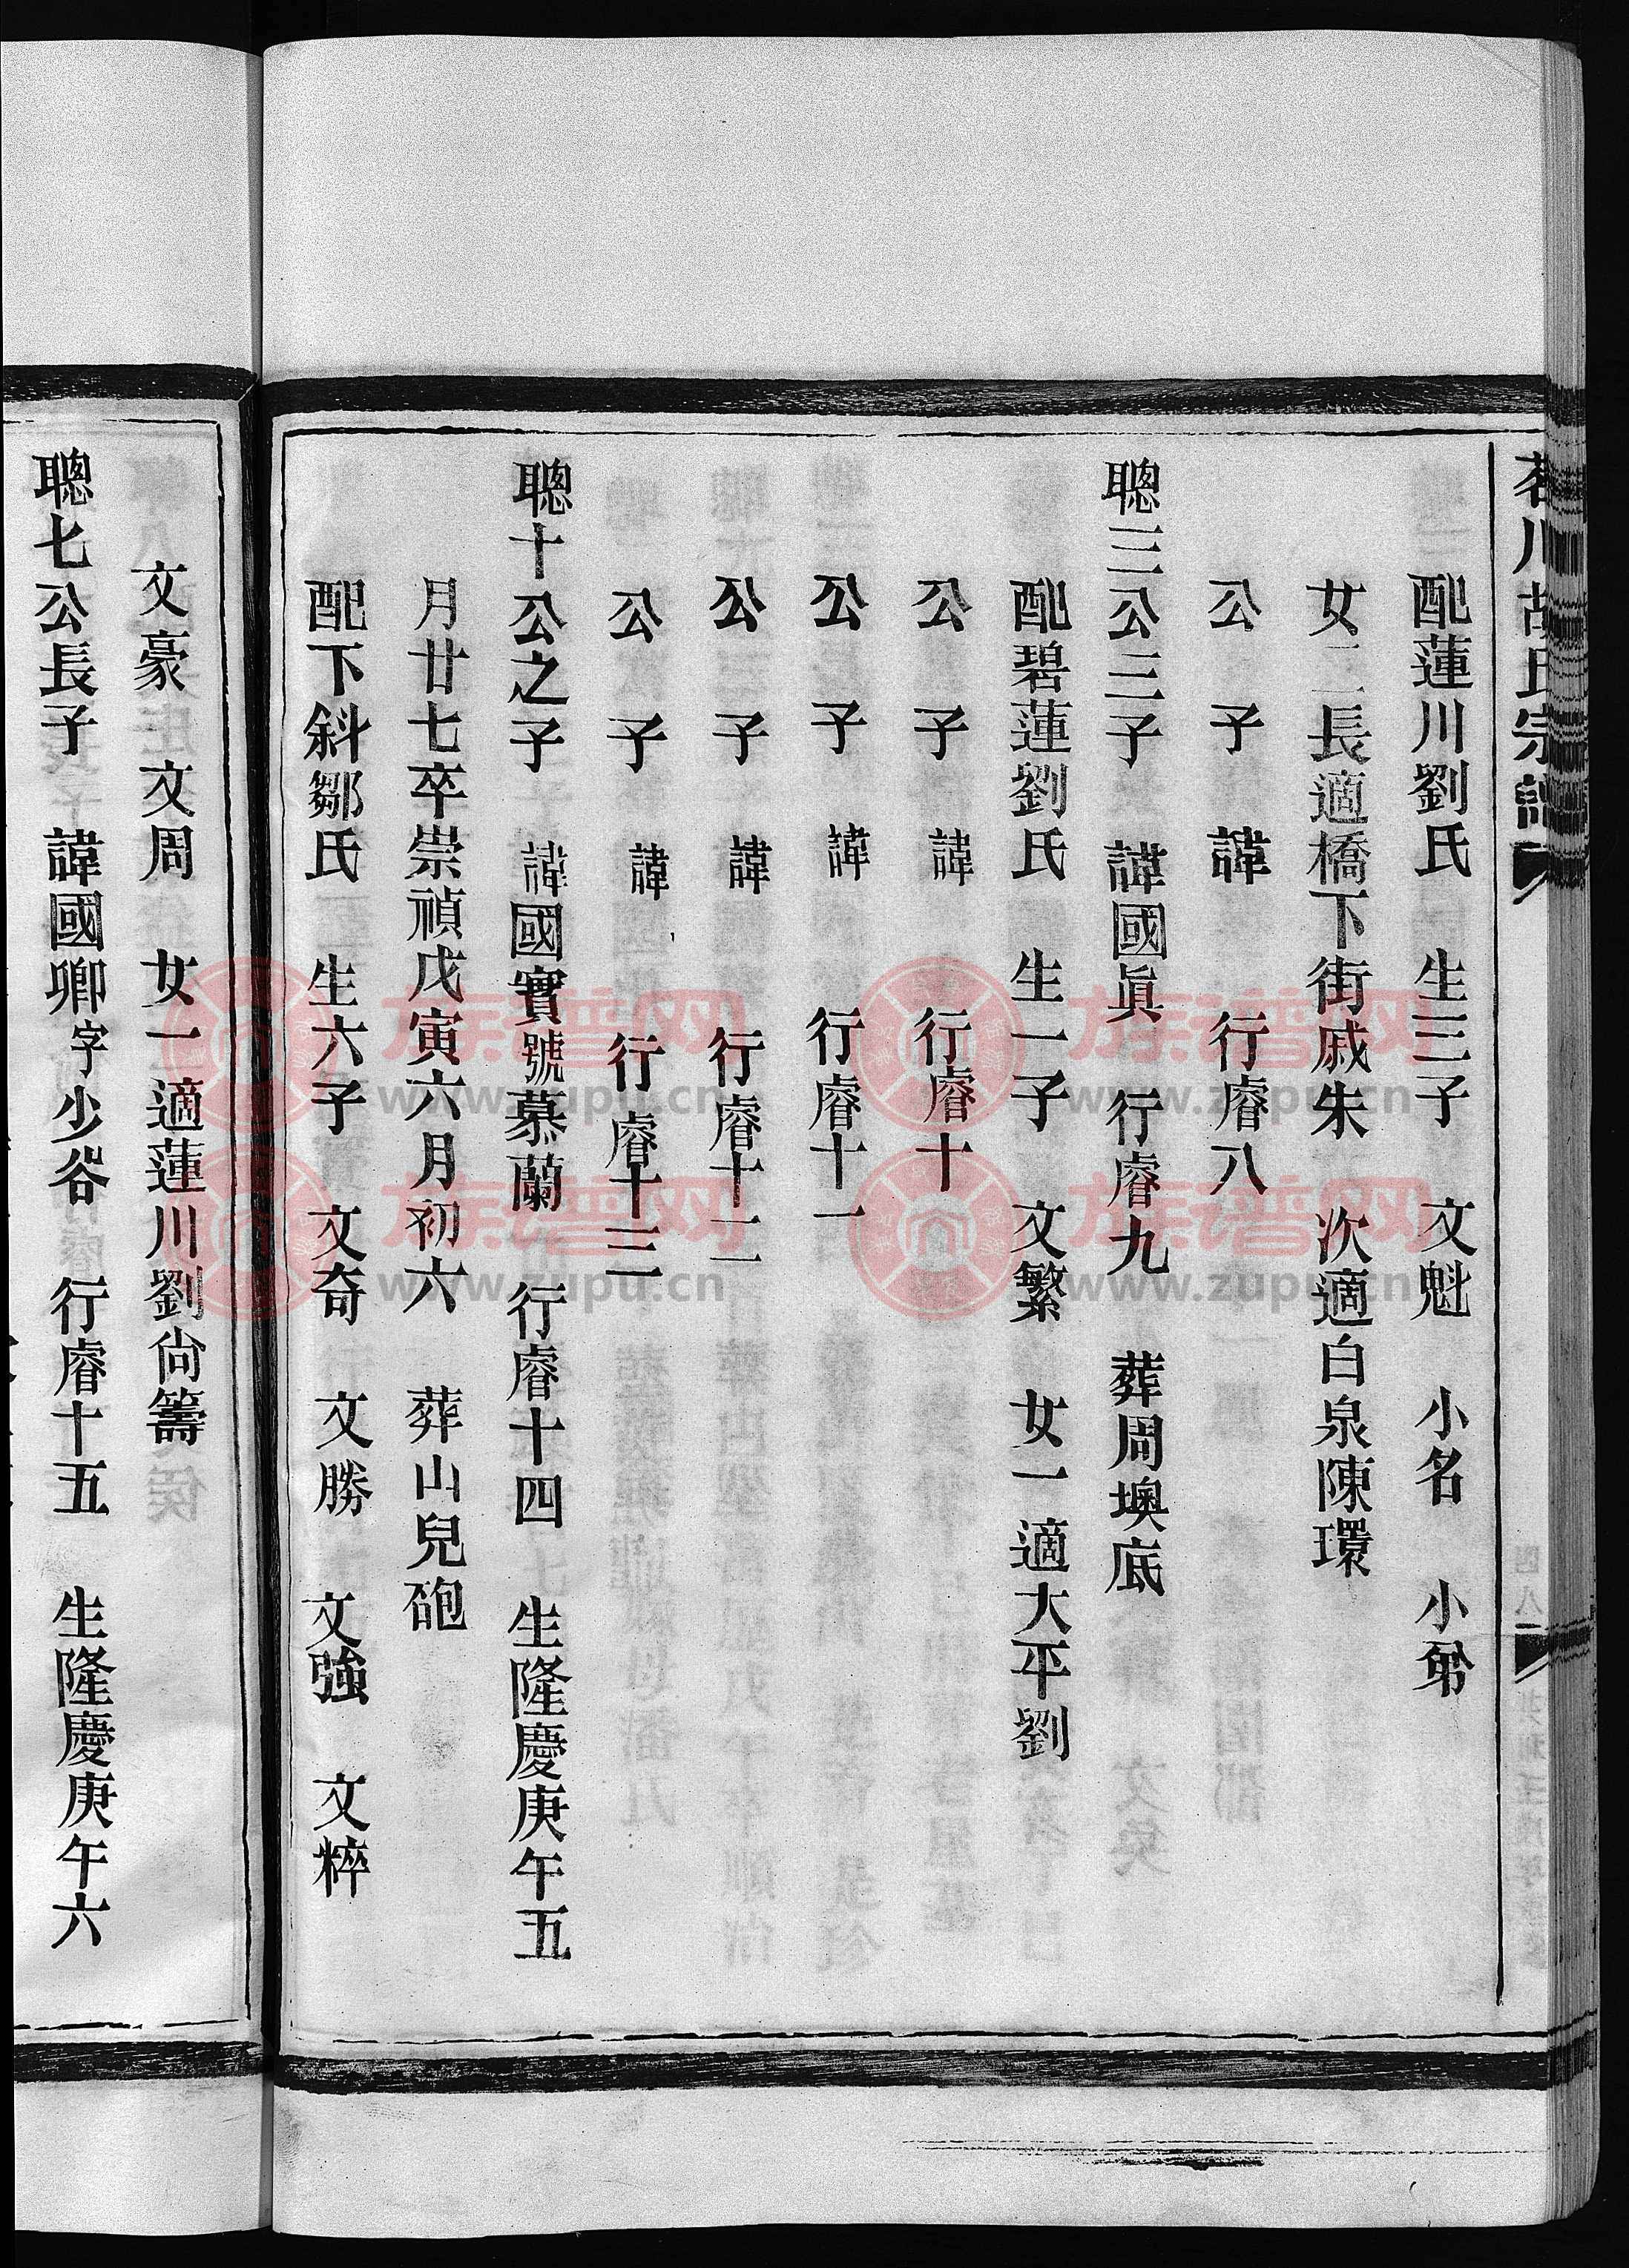 川胡氏宗譜
四八
配蓮川劉氏　生三子　文魁　小名　小弟
女二長適橋下街戚朱　次適白泉陳環
公　子　諱　行睿八
聰三公三子　諱國眞　行睿九　葬周墺底
配碧蓮劉氏　生一子　文繁　女一適大平劉
公　子　諱　行睿十
公　子　諱　行睿十一
公　子　諱　行睿十二
公　子　諱　行睿十三
聰十公之子　諱國實號慕蘭　行睿十四　生隆慶庚午五
月廿七卒崇禎戊寅六月初六　葬山兒砲
配下斜鄒氏　生六子　文奇　文勝　文強　文粹
文豪　文周　女一適蓮川劉尙籌
聰七公長子　諱國卿字少谷　行睿十五　生隆慶庚午六
族谱网
www.zupu.cn
族谱网
www.zupu.cn
族谱网
www.zupu.cn
族谱网
www.zupu.cn